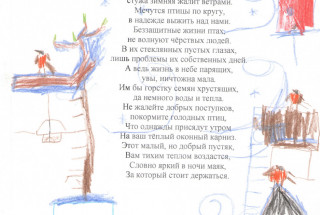 стужа зимняя жалит ветрами.
Мечутся птицы по кругу,
в надежде выжить над нами.
Беззащитные жизни птах,
не волнуют чёрствых людей.
В их стеклянных пустых глазах,
лишь проблемы их собственных дней.
А ведь жизнь в небе парящих,
увы, ничтожна мала.
Им бы горстку семян хрустящих,
да немного воды и тепла.
Не жалейте добрых поступков,
покормите голодных птиц,
Что однажды присядут утром
На ваш тёплый окомный карниз.
Этот малый, но добрый пустяк,
Вам тихим теплом воздастся,
Словно яркий в ночи маяк,
За который стоит держаться.